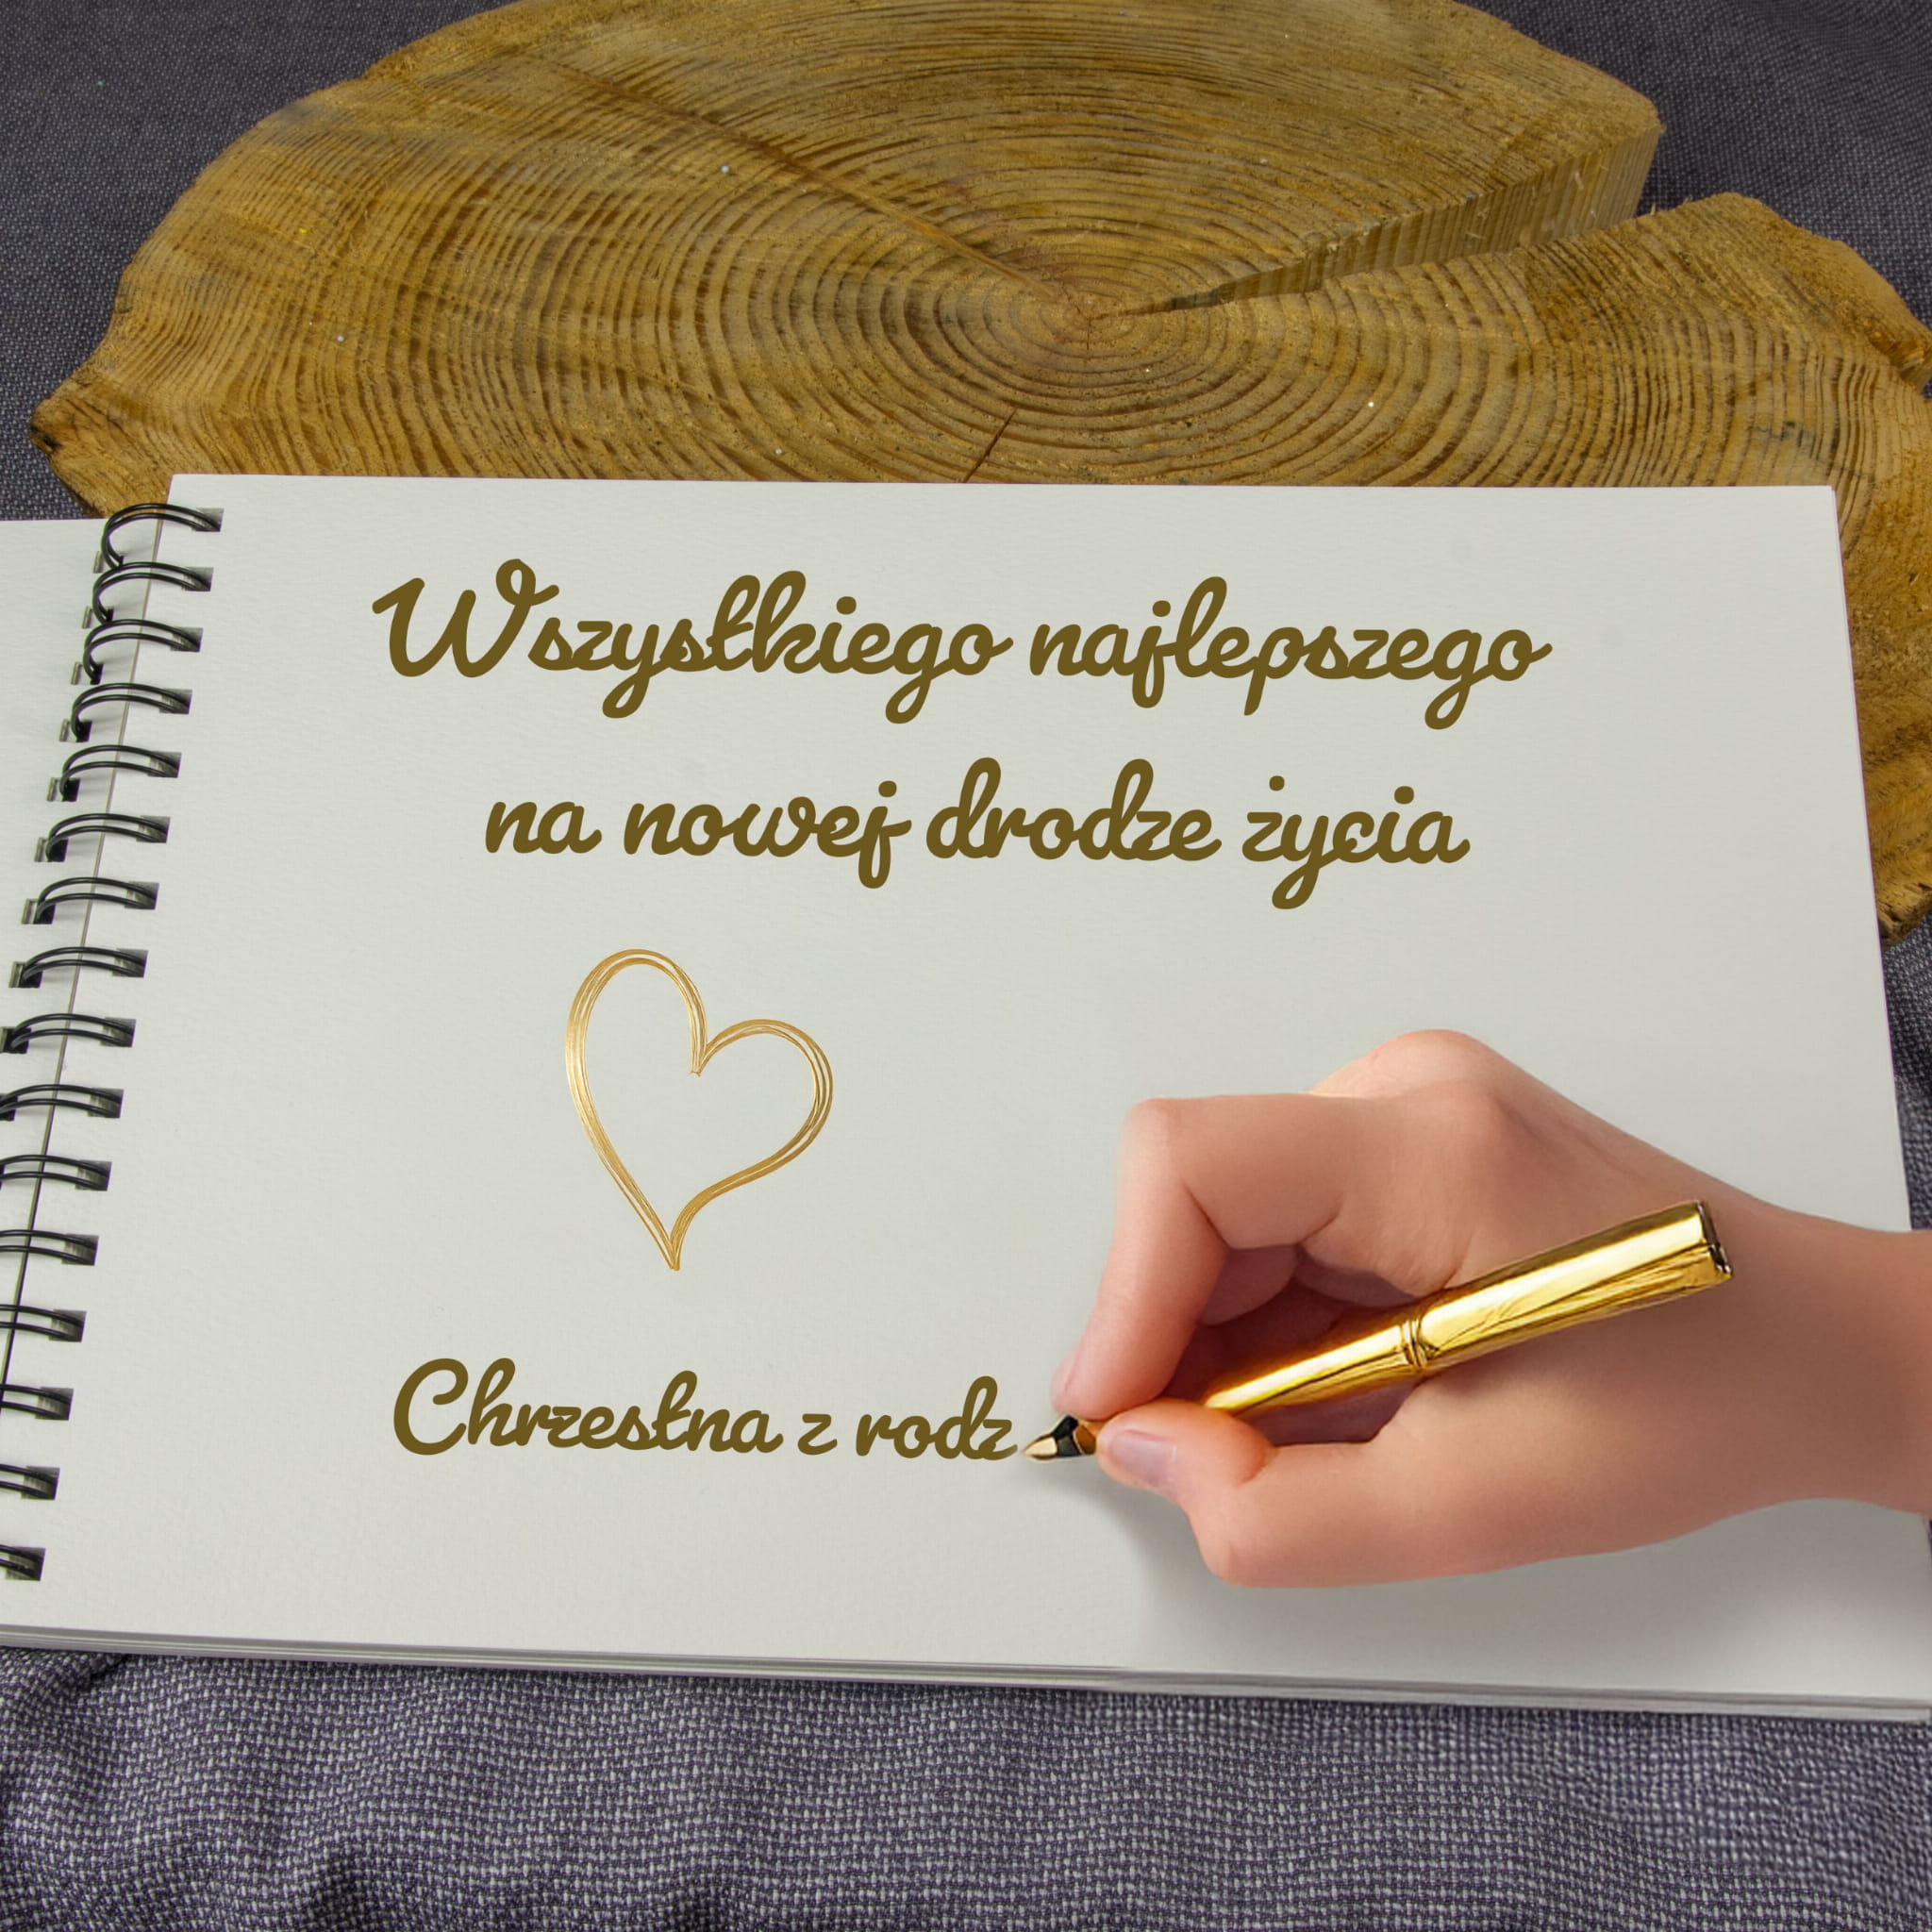 Wszystkiego najlepszego
na nowej drodze życia
Chrzestna z rodz